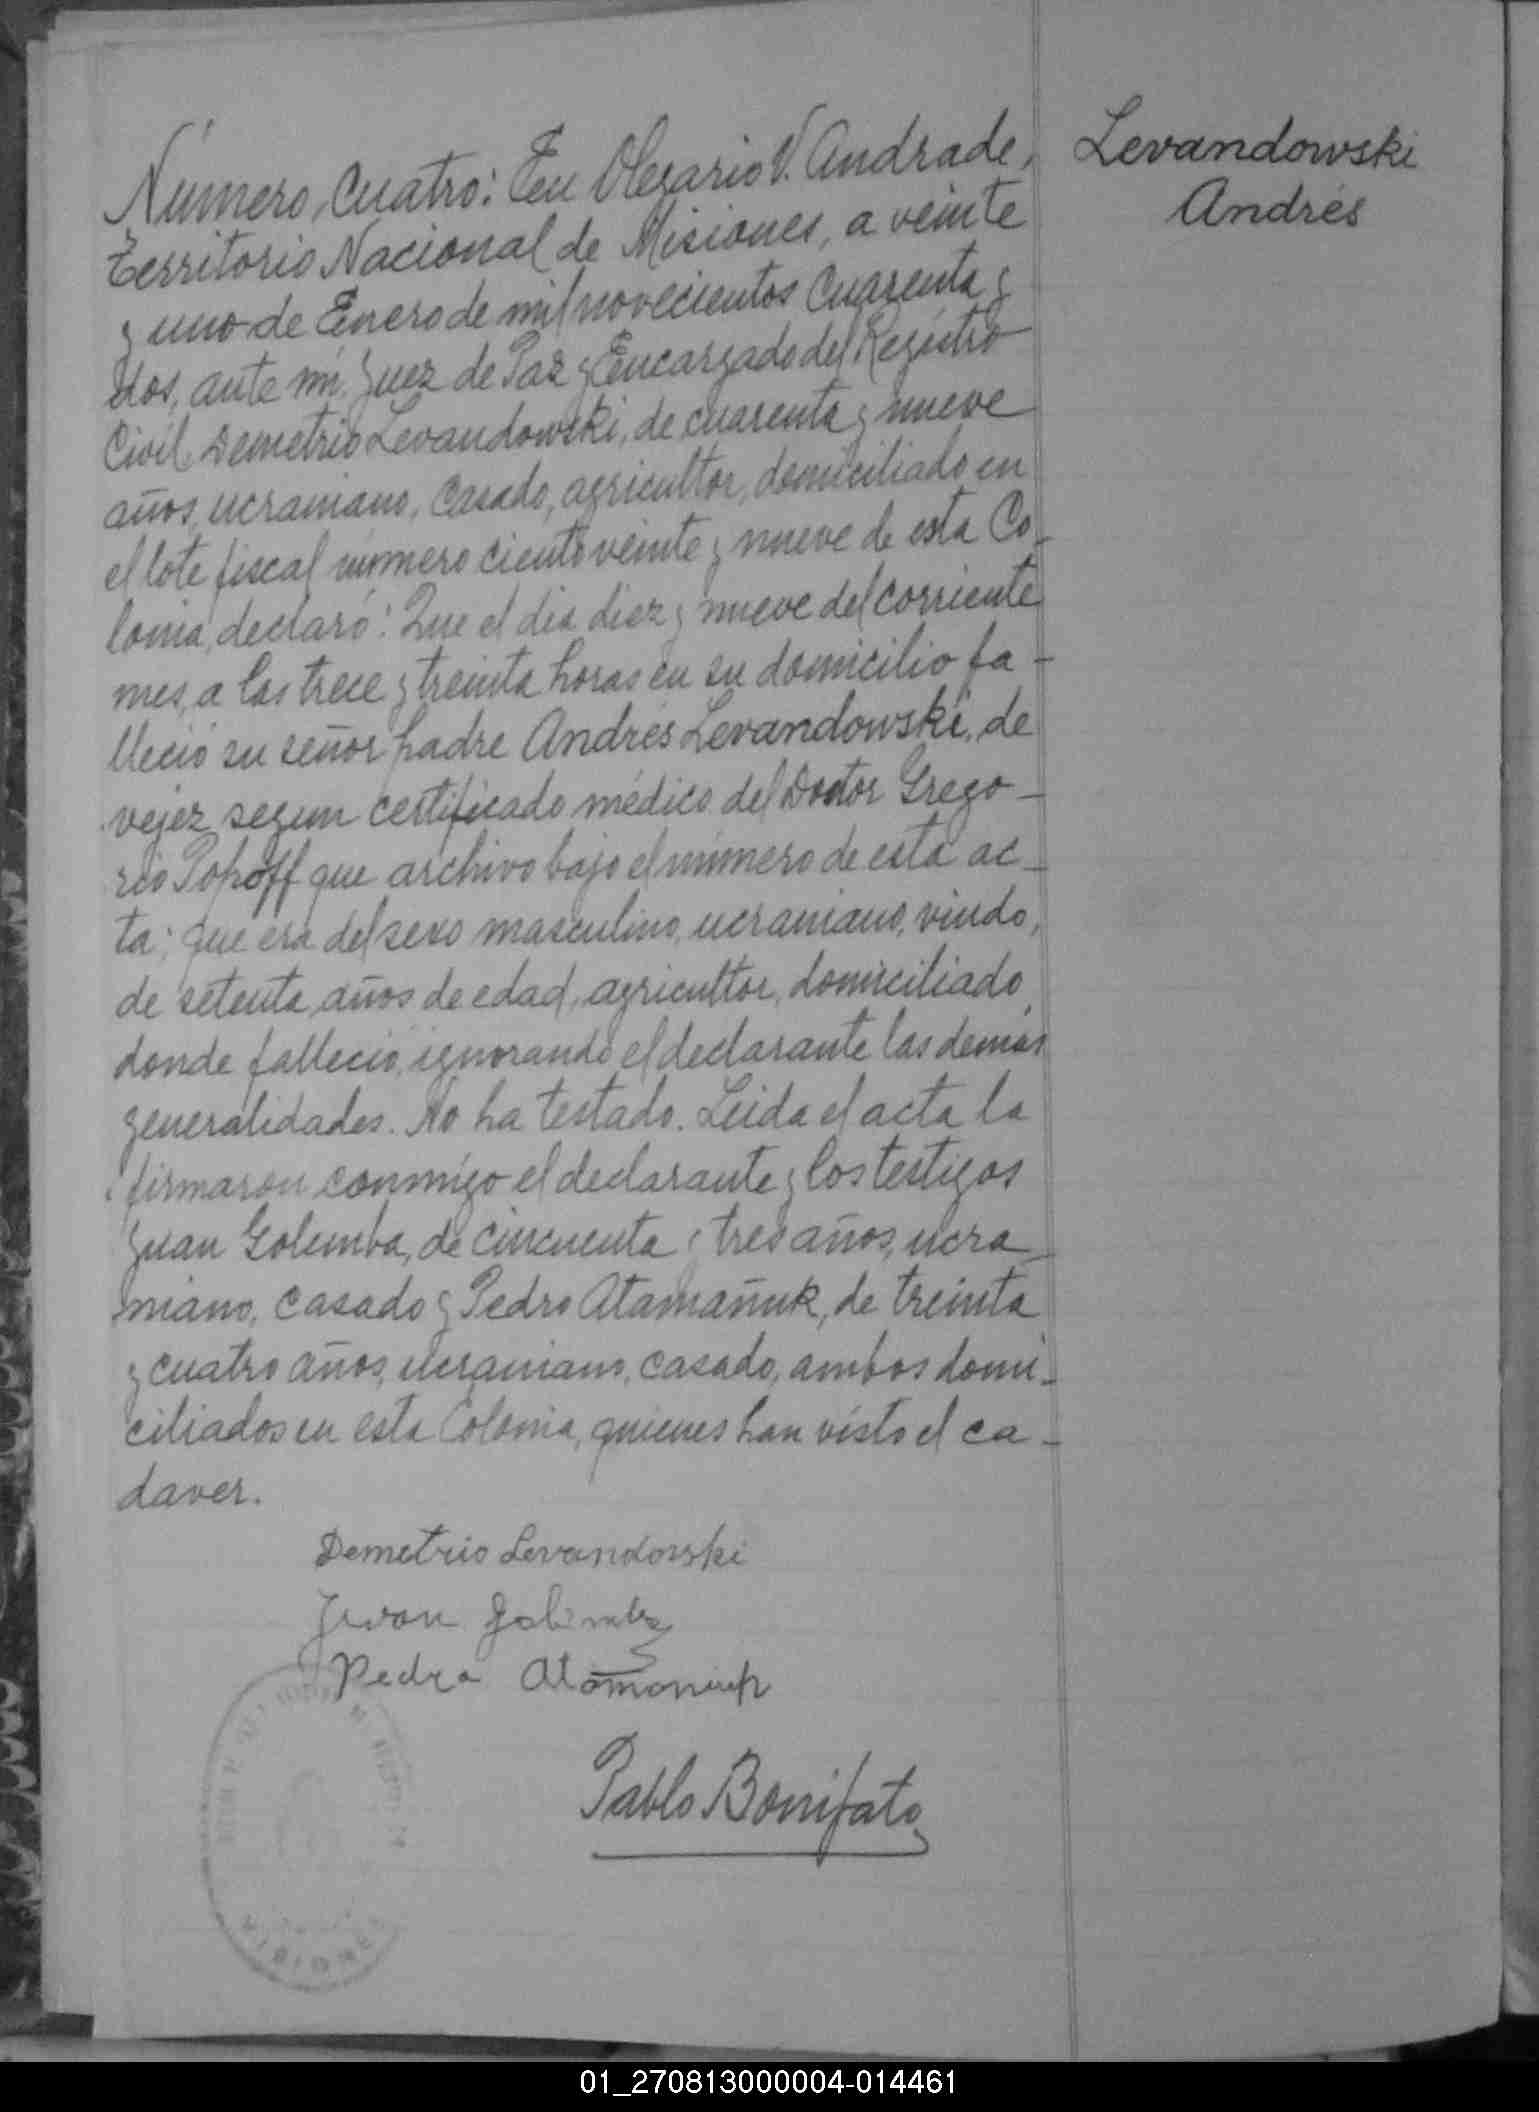 Levandowski
Andrés
Número Cuatro: En Olegario V. Andrade,
Territorio Nacional de Misiones, a veinte
y uno de Enero de mil novecientos Cuarenta y
dos, ante mí, Juez de Paz y Encargado del Registro
Civil Demetrio Levandowski, de cuarenta y nueve
años, ucraniano, casado, agricultor, domiciliado en
el lote fiscal número ciento veinte y nueve de esta Co-
lonia, declaró: Que el dia diez y nueve del corriente
mes, a las trece y treinta horas en su domicilio fa-
lleció su señor padre Andrés Levandowski, de
vejez segun certificado médico del Doctor Grego-
rio Popoff que archivo bajo el número de esta ac-
ta; que era del sexo masculino, ucraniano, viudo,
de setenta años de edad, agricultor, domiciliado
donde falleció, ignorando el declarante las demás
generalidades. No ha testado. Leida el acta la
firmaron conmigo el declarante y los testigos
Juan Golemba, de cincuenta y tres años, ucra-
niano, casado y Pedro Atamañuk, de treinta
y cuatro años, ucraniano, casado, ambos domi-
ciliados en esta Colonia, quienes han visto el ca-
daver.
Demetrio Levandovski
Pedro
Pablo Bonifato
MISIONES
01_270813000004-014461